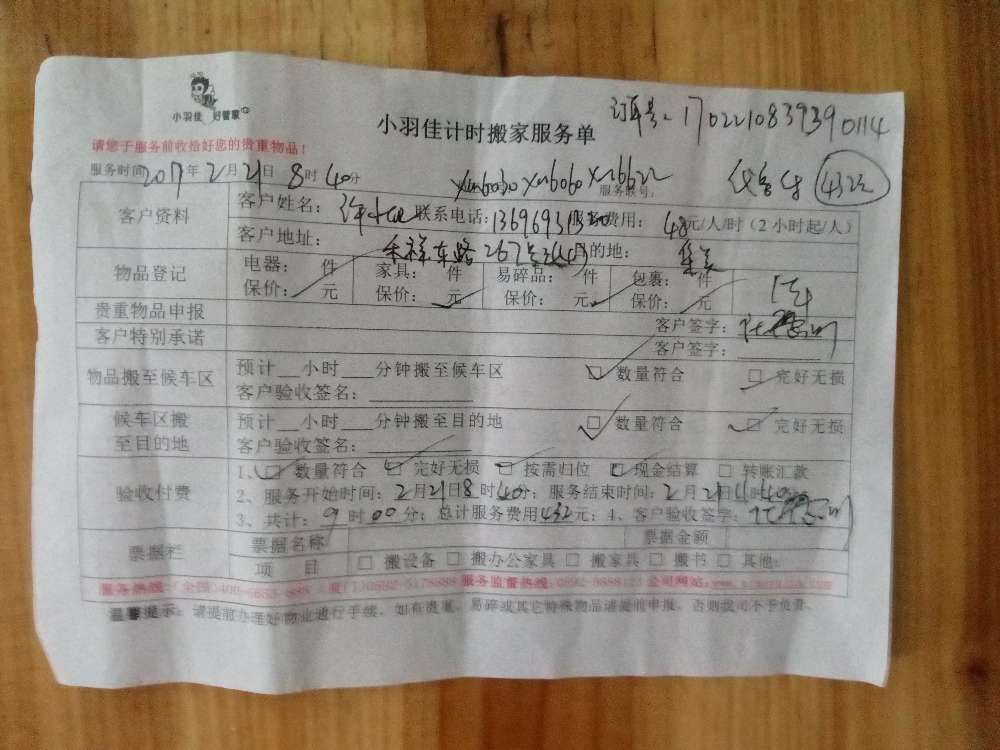 小羽佳 好管家
订单号：170221083939 0114
小羽佳计时搬家服务单
请您于服务前收拾好您的贵重物品！
服务时间2017年2月21日8时40分
Xm6030 Xm6060 Xm6622 服务账号：
432
客户资料
客户姓名：许 联系电话：136969313 费用：48元/人/时（2小时起/人）
客户地址：禾祥东路267号 目的地：集美
物品登记
电器： 件 家具： 件 易碎品： 件 包裹： 件
保价： 元 保价： 元 保价： 元 保价： 元
贵重物品申报 客户签字：
客户特别承诺 客户签字：
物品搬至候车区
预计__小时__分钟搬至候车区 数量符合 完好无损
客户验收签名：
候车区搬至目的地
预计__小时__分钟搬至目的地 数量符合 完好无损
客户验收签名：
验收付费
1、 数量符合 完好无损 按需归位 现金结算 转账汇款
2、服务开始时间：2月21日8时40分；服务结束时间：2月21日 时40分
3、共计：9时00分；总计服务费用432元；4、客户验收签字：
票据栏
票据名称 票据金额
项 目 搬设备 搬办公家具 搬家具 搬书 其他：
服务热线： 服务监督热线： 公司网站：
温馨提示：请提前办理好物业通行手续，如有贵重、易碎或其它特殊物品请提前申报，否则我司不予负责。